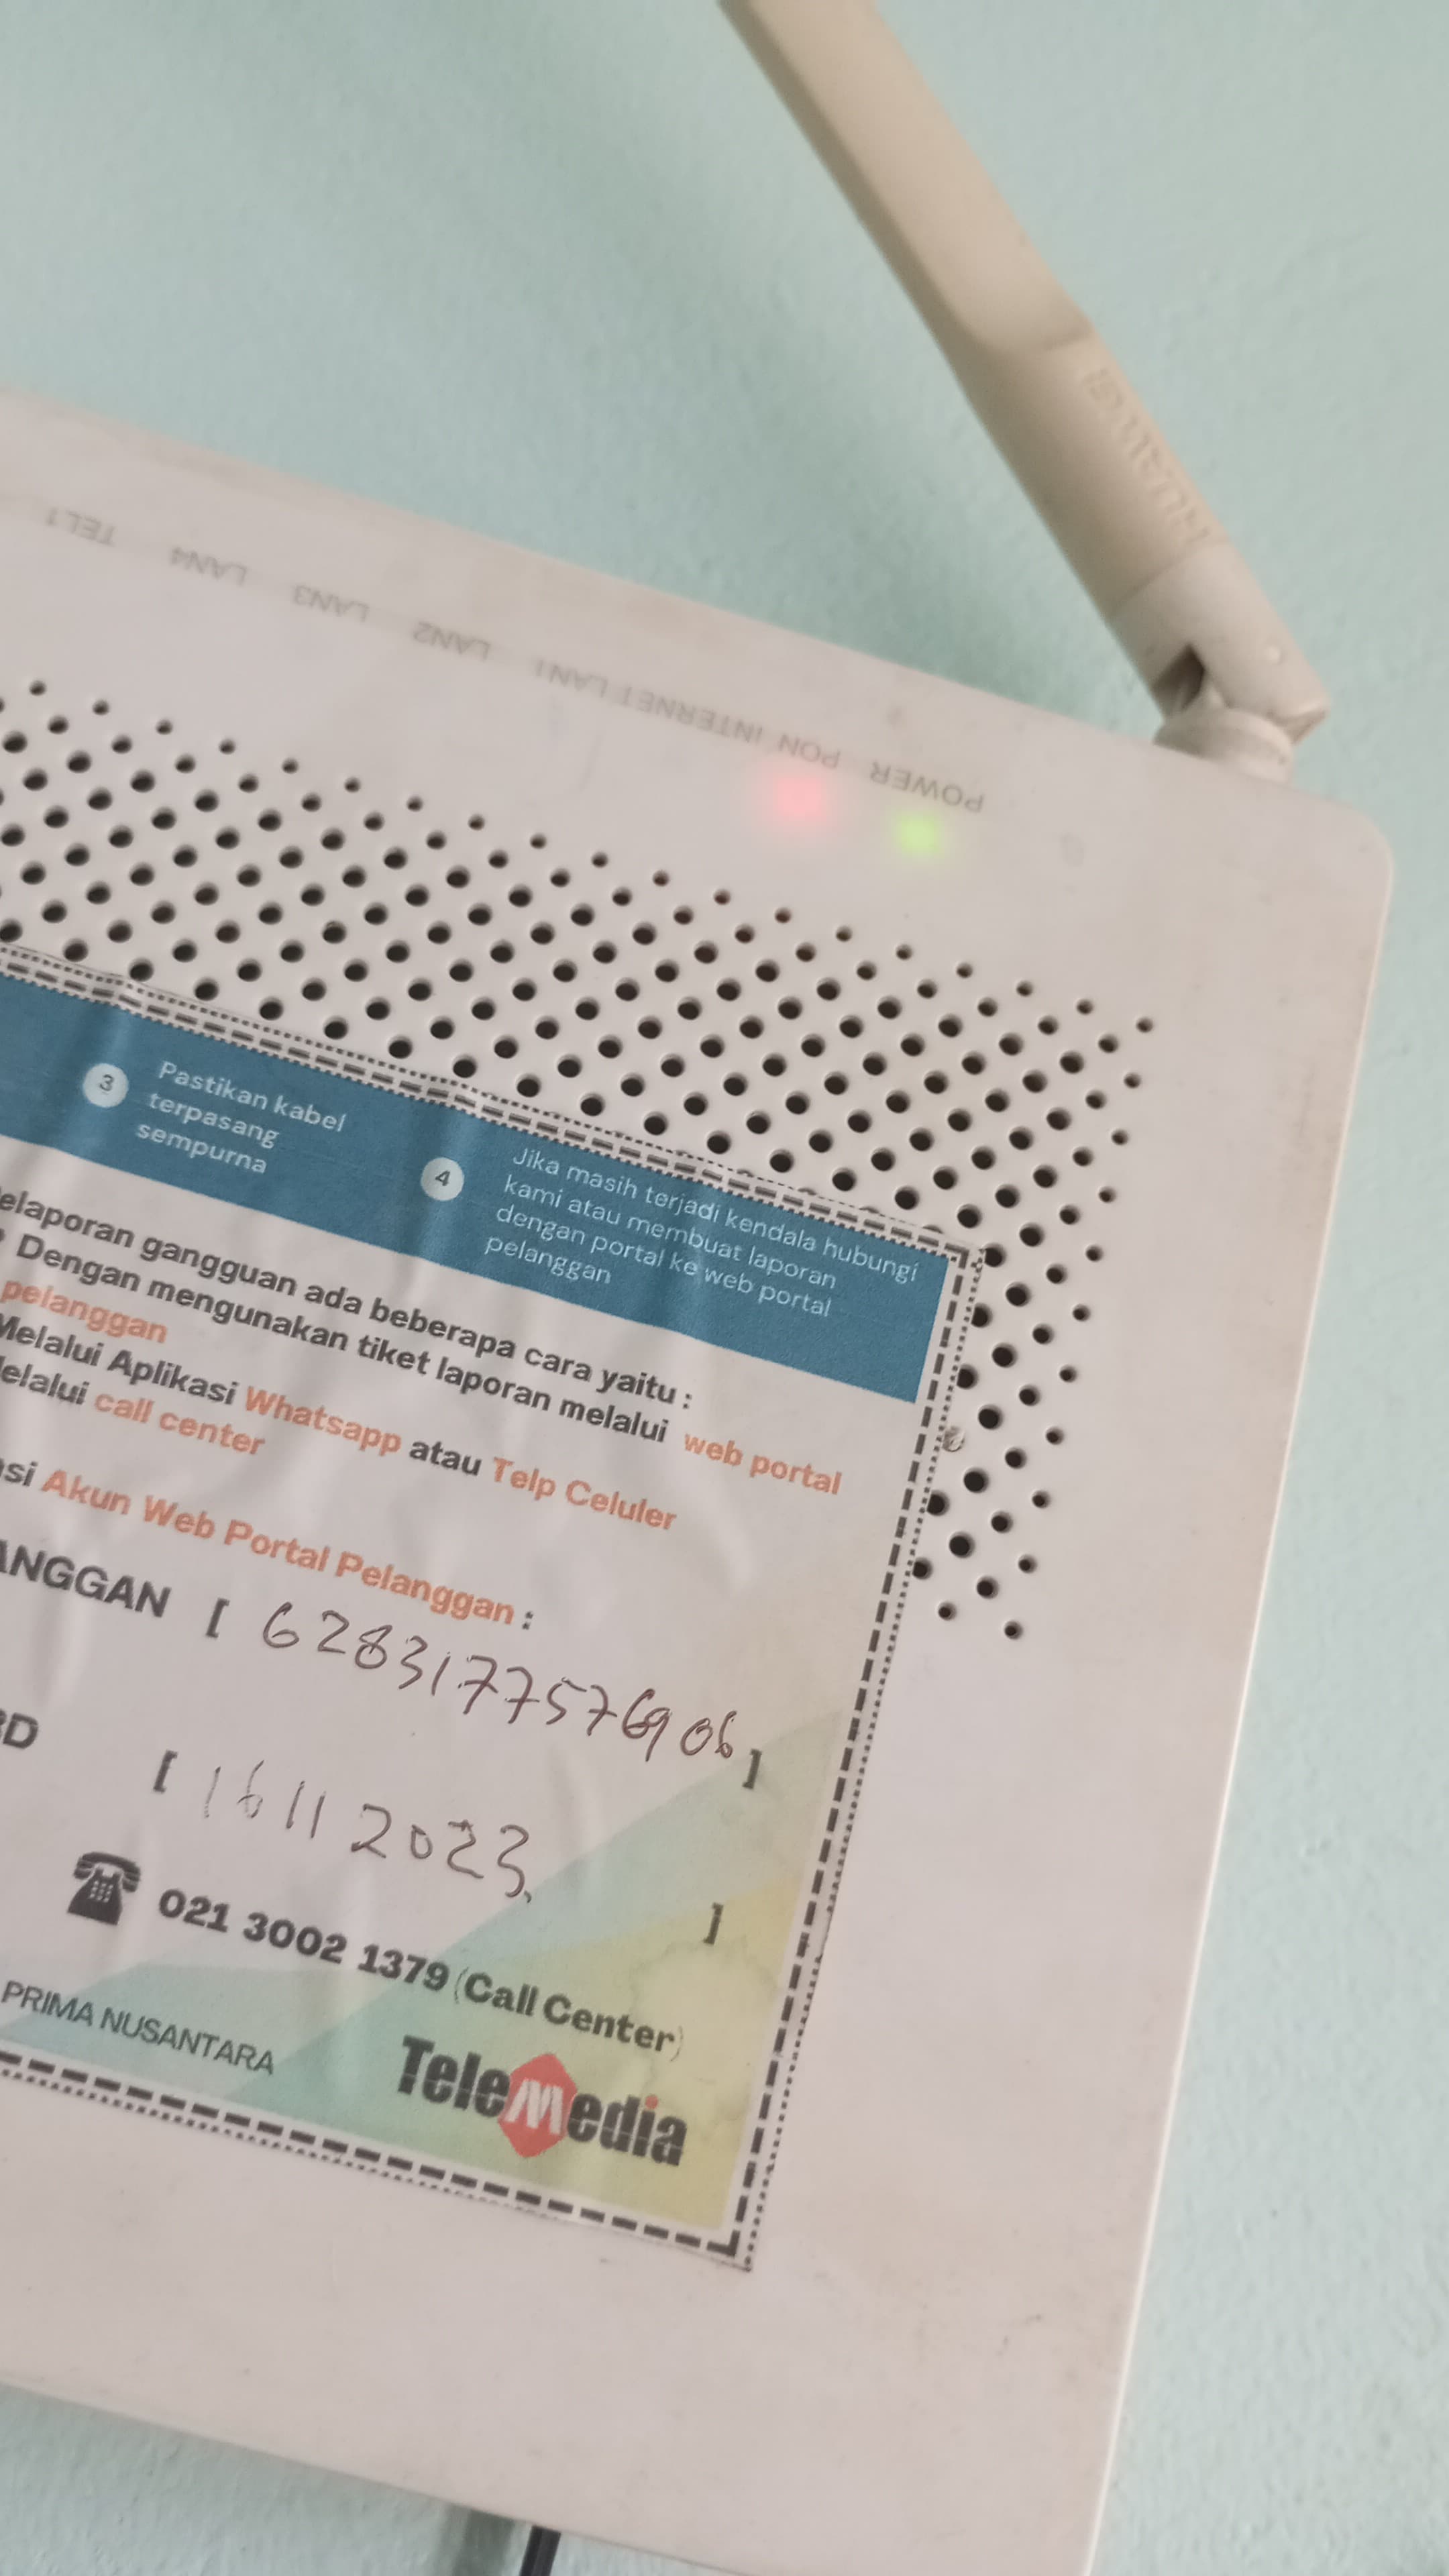 HUAWEI
TEL1 LAN4 LAN3 LAN2 LAN1 INTERNET PON POWER
3 Pastikan kabel
terpasang
sempurna
4 Jika masih terjadi kendala hubungi
kami atau membuat laporan
dengan portal ke web portal
pelanggan
elaporan gangguan ada beberapa cara yaitu :
Dengan mengunakan tiket laporan melalui web portal
pelanggan
Melalui Aplikasi Whatsapp atau Telp Celuler
elalui call center
si Akun Web Portal Pelanggan :
ANGGAN [ 6283177576906 ]
RD [ 16112023. ]
021 3002 1379 (Call Center)
PRIMA NUSANTARA
TeleMedia